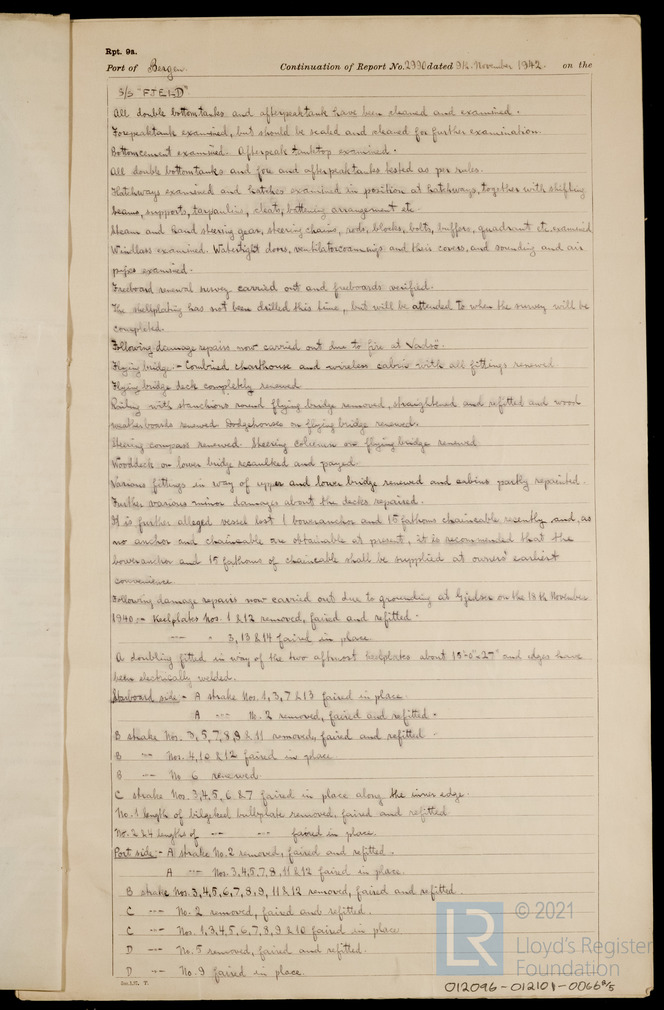 Rpt. 9a.
Port of Bergen. Continuation of Report No. 2990 dated 9th November 1942. on the
S/S "FIELD"
All double bottom tanks and afterpeak tank have been cleaned and examined.
Forepeak tank examined, but should be scaled and cleaned for further examination.
Bottom cement examined. Afterpeak tanktop examined.
All double bottom tanks and fore and afterpeak tanks tested as per rules.
Hatchways examined and hatches examined in position at hatchways, together with shifting
beams, supports, tarpaulins, cleats, battening arrangement etc.
Steam and hand steering gear, steering chains, rods, blocks, bolts, buffers, quadrant etc. examined
Windlass examined. Watertight doors, ventilator coamings and their covers, and sounding and air
pipes examined.
Freeboard renewal survey carried out and freeboards verified.
The shellplating has not been drilled this time, but will be attended to when the survey will be
completed.
Following damage repairs now carried out due to fire at Vadsö.
Flying bridge.- Combined charthouse and wireless cabin with all fittings renewed
Flying bridge deck completely renewed
Railing with stanchions round flying bridge removed, straightened and refitted and wood
weatherboards renewed. Dodgehouses on flying bridge renewed.
Steering compass renewed. Steering column on flying bridge renewed
Wooddeck on lower bridge recaulked and payed.
Various fittings in way of upper and lower bridge renewed and cabins partly repainted.
Further various minor damages about the decks repaired.
It is further alleged vessel lost 1 bower anchor and 15 fathoms chaincable recently and, as
no anchor and chaincable are obtainable at present, it is recommended that the
bower anchor and 15 fathoms of chaincable shall be supplied at owners' earliest
convenience
Following damage repairs now carried out due to grounding at Gjedser on the 13th November
1940:- Keelplates Nos. 1 & 12 removed, faired and refitted.
--- " 3, 13 & 14 faired in place.
A doubling fitted in way of the two aftmost keelplates about 15'-6" x 27" and edges have
been electrically welded.
Starboard side - A strake Nos. 1, 3, 7 & 13 faired in place
A --- No. 2 removed, faired and refitted.
B strake Nos. 3, 5, 7, 8, 9 & 11 removed, faired and refitted.
B --- Nos. 4, 10 & 12 faired in place
B --- No 6 renewed
C strake Nos. 3, 4, 5, 6 & 7 faired in place along the inner edge.
No. 1 length of bilgekeel bulbplate removed, faired and refitted
No. 2 & 4 lengths of --- --- faired in place.
Port side - A strake No. 2 removed, faired and refitted.
A --- Nos. 3, 4, 5, 7, 8, 11 & 12 faired in place.
B strake Nos. 3, 4, 5, 6, 7, 8, 9, 11 & 12 removed, faired and refitted.
C --- No. 2 removed, faired and refitted.
C --- Nos. 1, 3, 4, 5, 6, 7, 8, 9 & 10 faired in place
D --- No. 5 removed, faired and refitted.
D --- No. 9 faired in place.
LR
© 2021
Lloyd's Register
Foundation
012096-012101-0066 3/5